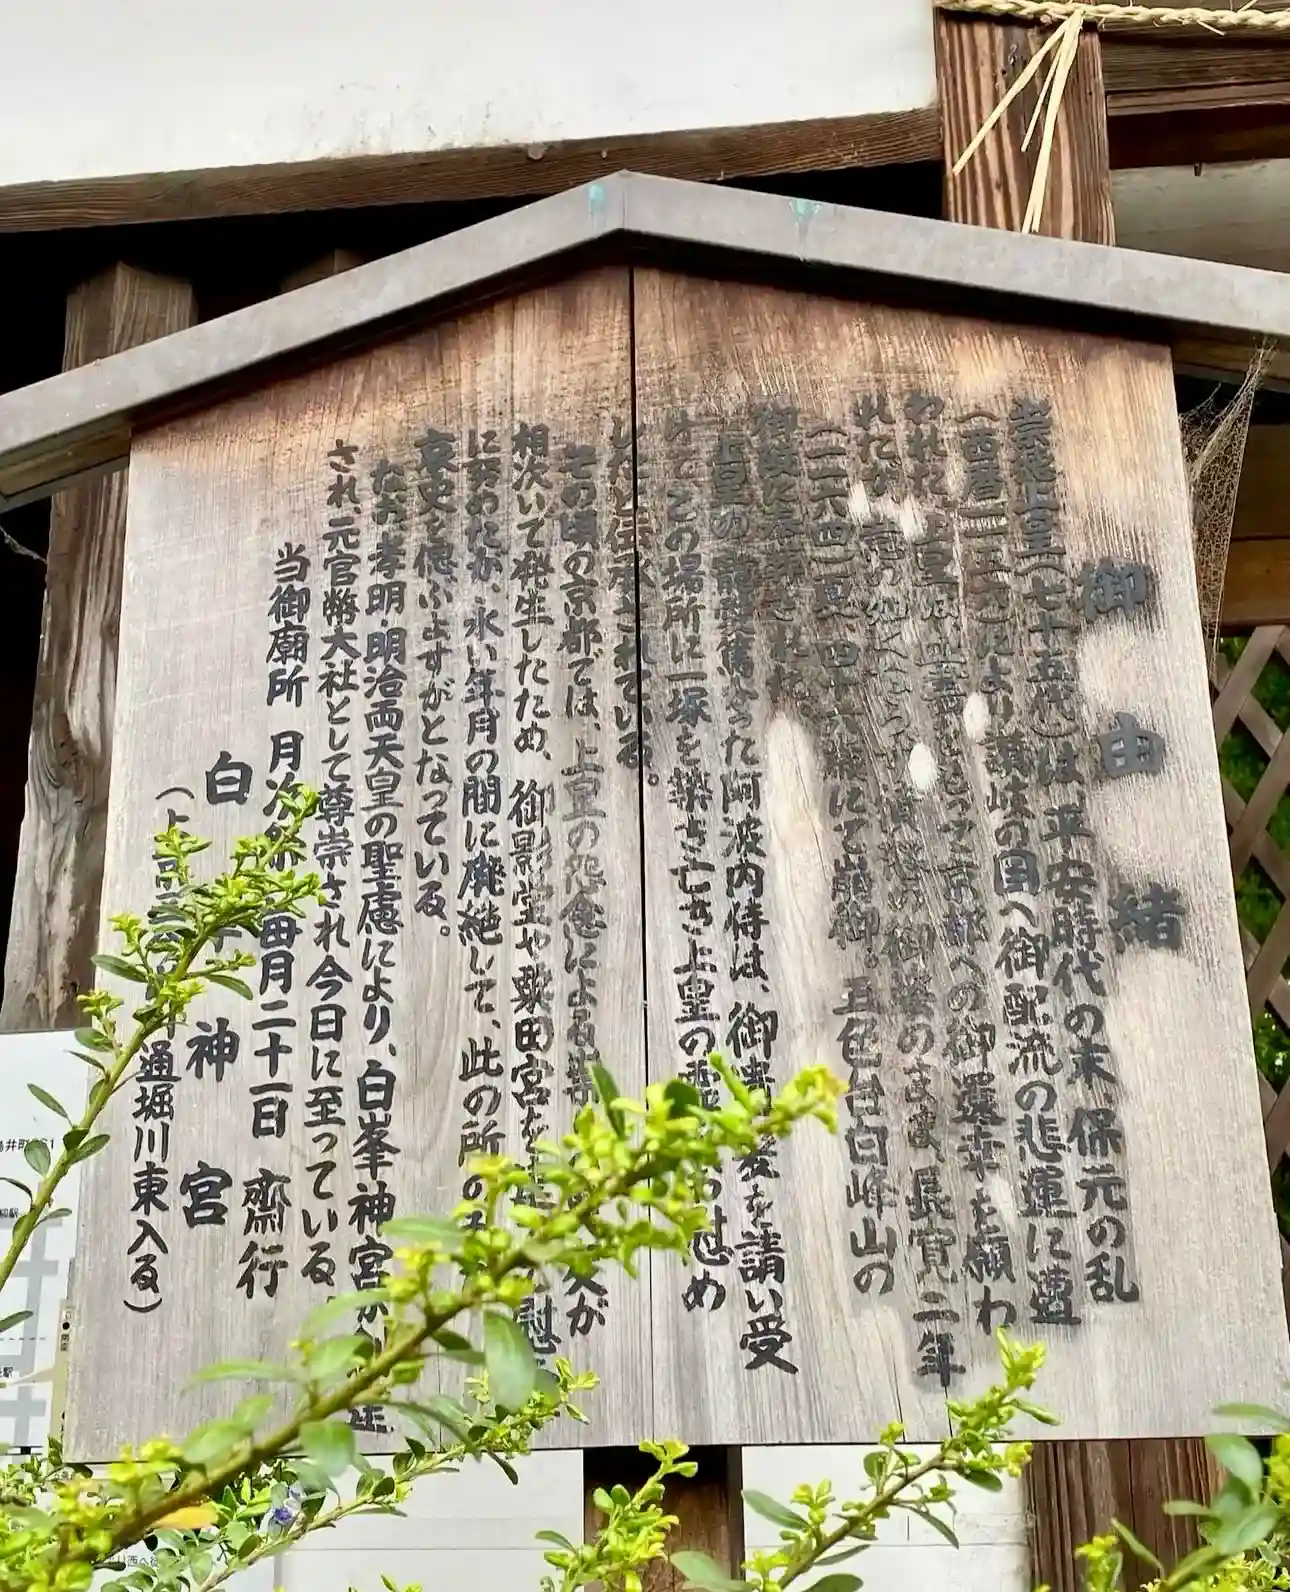 御由緒
崇徳上皇(七十五代)は、平安時代の末、保元の乱
(西暦一一五六)により讃岐の国へ御配流の悲運に遭
われた。上皇は 京都への御還幸を願わ
れたが、意の如くならず、 御姿のまま、長寛二年
(一一六四)夏、四十六歳にて崩御。五色台白峰山の
御陵に奉葬された。
上皇の御寵愛篤かった阿波内侍は、御 を請い受
けてこの場所に一塚を築き亡き上皇の霊 慰め
したと伝承されている。
その頃の京都では、上皇の怨念による が
相次いで発生したため、御影堂や粟田宮を 慰
に努めたが、永い年月の間に廃絶して、此の所の
哀史を偲ぶよすがとなっている。
なお孝明・明治両天皇の聖慮により、白峯神宮が
され、元官幣大社として尊崇され今日に至っている。
当御廟所 月次祭 毎月二十一日 齋行
白峯神宮
(上京区 通堀川東入る)